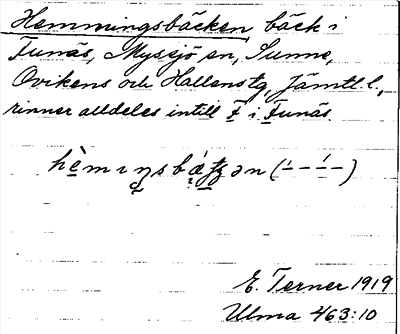 Hemmningsbäcken bäck i
Funäs, Myssjö sn, Sunne,
Ovikens och Hallens tg, Jämtl. l.,
rinner alldeles intill F i Funäs.
E. Terner 1919
Ulma 463:10